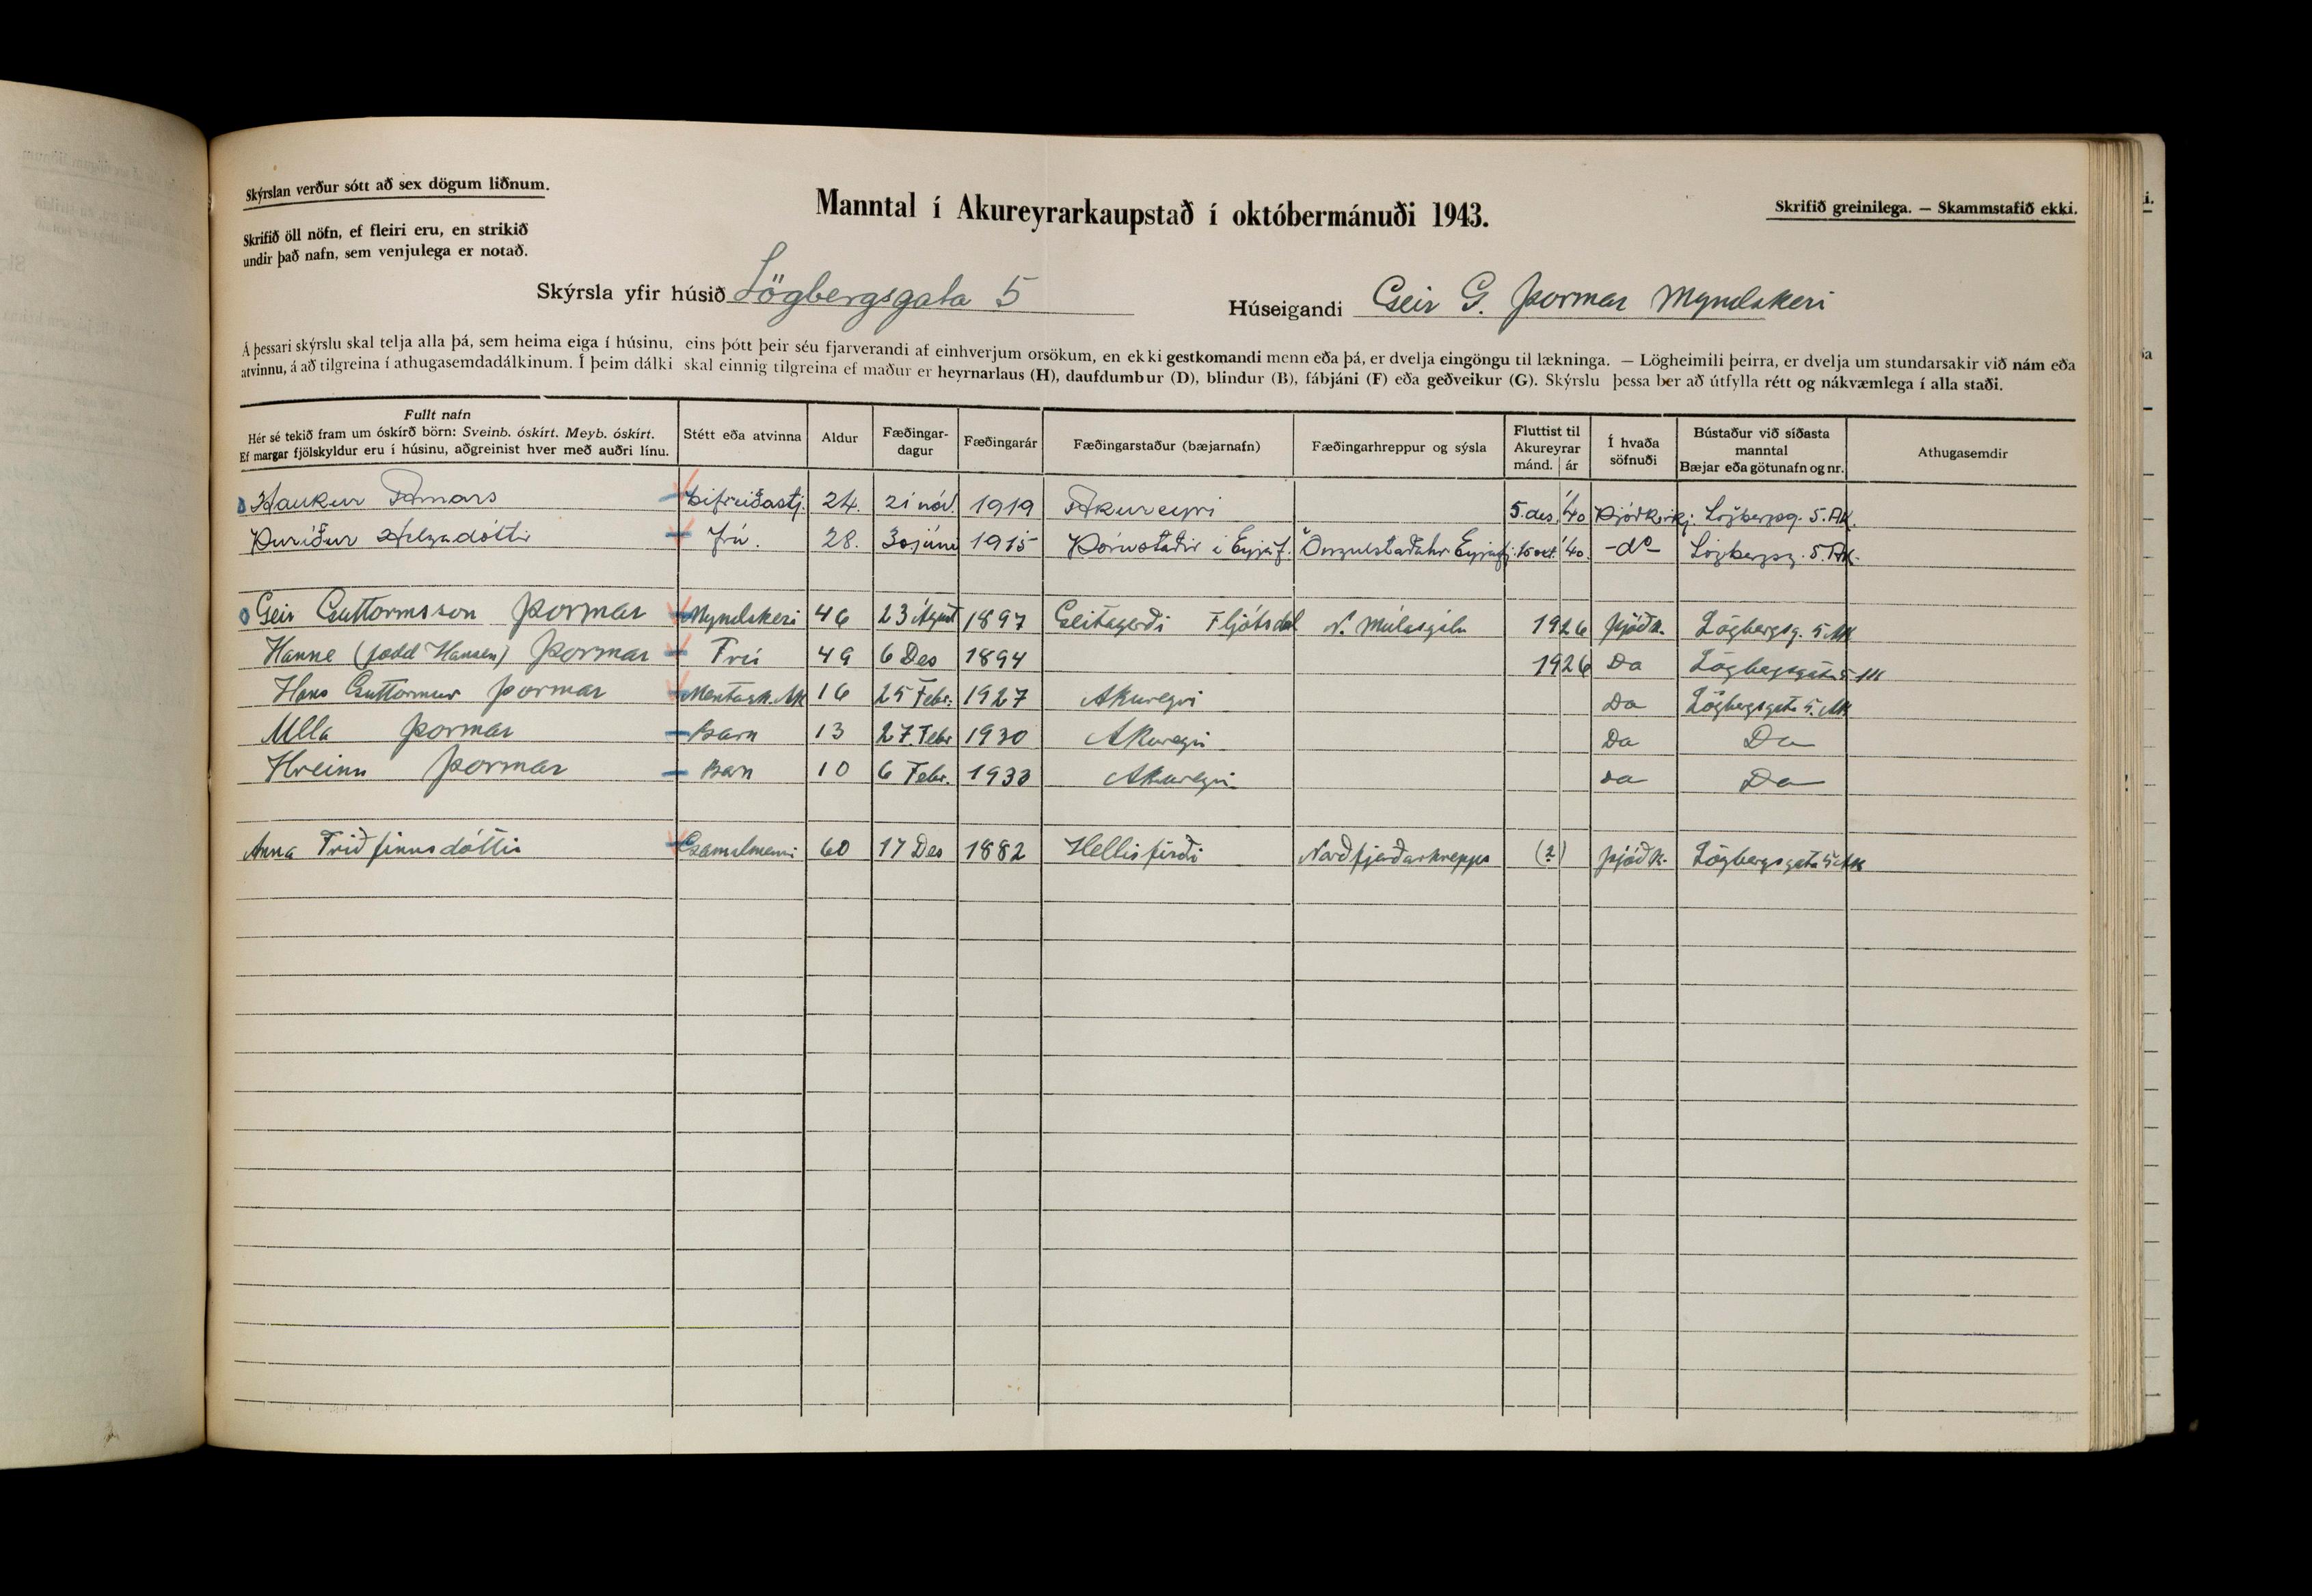 Skýrslan verður sótt að sex dögum liðnum.
Skrifið öll nöfn, ef fleiri eru, en strikið
undir það nafn, sem venjulega er notað.
Manntal í Akureyrarkaupstað í októbermánuði 1943.
Skrifið greinilega. — Skammstafið ekki.
Skýrsla yfir húsið Lögbergsgata 5
Húseigandi Geir G. Þormar Myndskeri
Á þessari skýrslu skal telja alla þá, sem heima eiga í húsinu, eins þótt þeir séu fjarverandi af einhverjum orsökum, en ekki gestkomandi menn eða þá, er dvelja eingöngu til lækninga. — Lögheimili þeirra, er dvelja um stundarsakir við nám eða
atvinnu, á að tilgreina í athugasemdadálkinum. Í þeim dálki skal einnig tilgreina ef maður er heyrnarlaus (H), daufdumbur (D), blindur (B), fábjáni (F) eða geðveikur (G). Skýrslu þessa ber að útfylla rétt og nákvæmlega í alla staði.
Fullt nafn
Hér sé tekið fram um óskírð börn: Sveinb. óskírt. Meyb. óskírt.
Ef margar fjölskyldur eru í húsinu, aðgreinist hver með auðri línu.
Stétt eða atvinna
Aldur
Fæðingar-
dagur
Fæðingarár
Fæðingarstaður (bæjarnafn)
Fæðingarhreppur og sýsla
Fluttist til
Akureyrar
mánd. ár
Í hvaða
söfnuði
Bústaður við síðasta
manntal
Bæjar eða götunafn og nr.
Athugasemdir
Haukur bifreiðastj. 24. 21 nóv. 1919 Akureyri 5. des. '40 Þjóðkirkj. Lögbergsg. 5. Ak.
Þuríður Helgadóttir Frú. 28. 30 júní 1915 Þórustaðir í Eyjaf. Öngulstaðahr Eyjafj. 15 okt. '40. -do- Lögbergsg. 5. Ak.
Geir Guttormsson Þormar Myndskeri 46 23 Ágúst 1897 Geitagerði Fljótsdal N. Múlasýslu 1926 Þjóðk. Lögbergsg. 5 Ak
Hanne (fædd Hansen) Þormar Frú 49 6 Des 1894 1926 Do Lögbergsgata 5 Ak
Hans Guttormur Þormar Mentask. Ak 16 25 Febr. 1927 Akureyri Do Lögbergsgata 5. Ak
Ulla Þormar Barn 13 27. Febr 1930 Akureyri Do Do
Hreinn Þormar Barn 10 6 Febr. 1933 Akureyri do Do
Anna Friðfinnsdóttir Gamalmenni 60 17 Des 1882 Hellisfirði Norðfjarðarhreppi (?) Þjóðk. Lögbergsgata 5 Ak